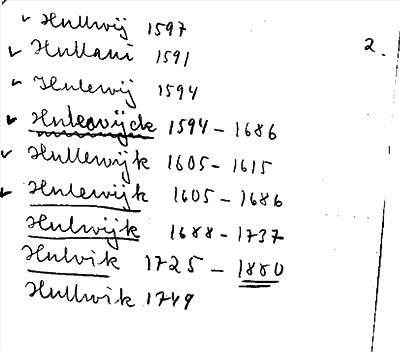 ✓ Hullwij 1597
2.
✓ Hullani 1591
✓ Hulewij 1594
✓ Hulewijck 1594 - 1686
✓ Hullewijk 1605 - 1615
✓ Hulewijk 1605 - 1686
Hulwijk 1688 - 1737
Hulvik 1725 - 1880
Hullwik 1749